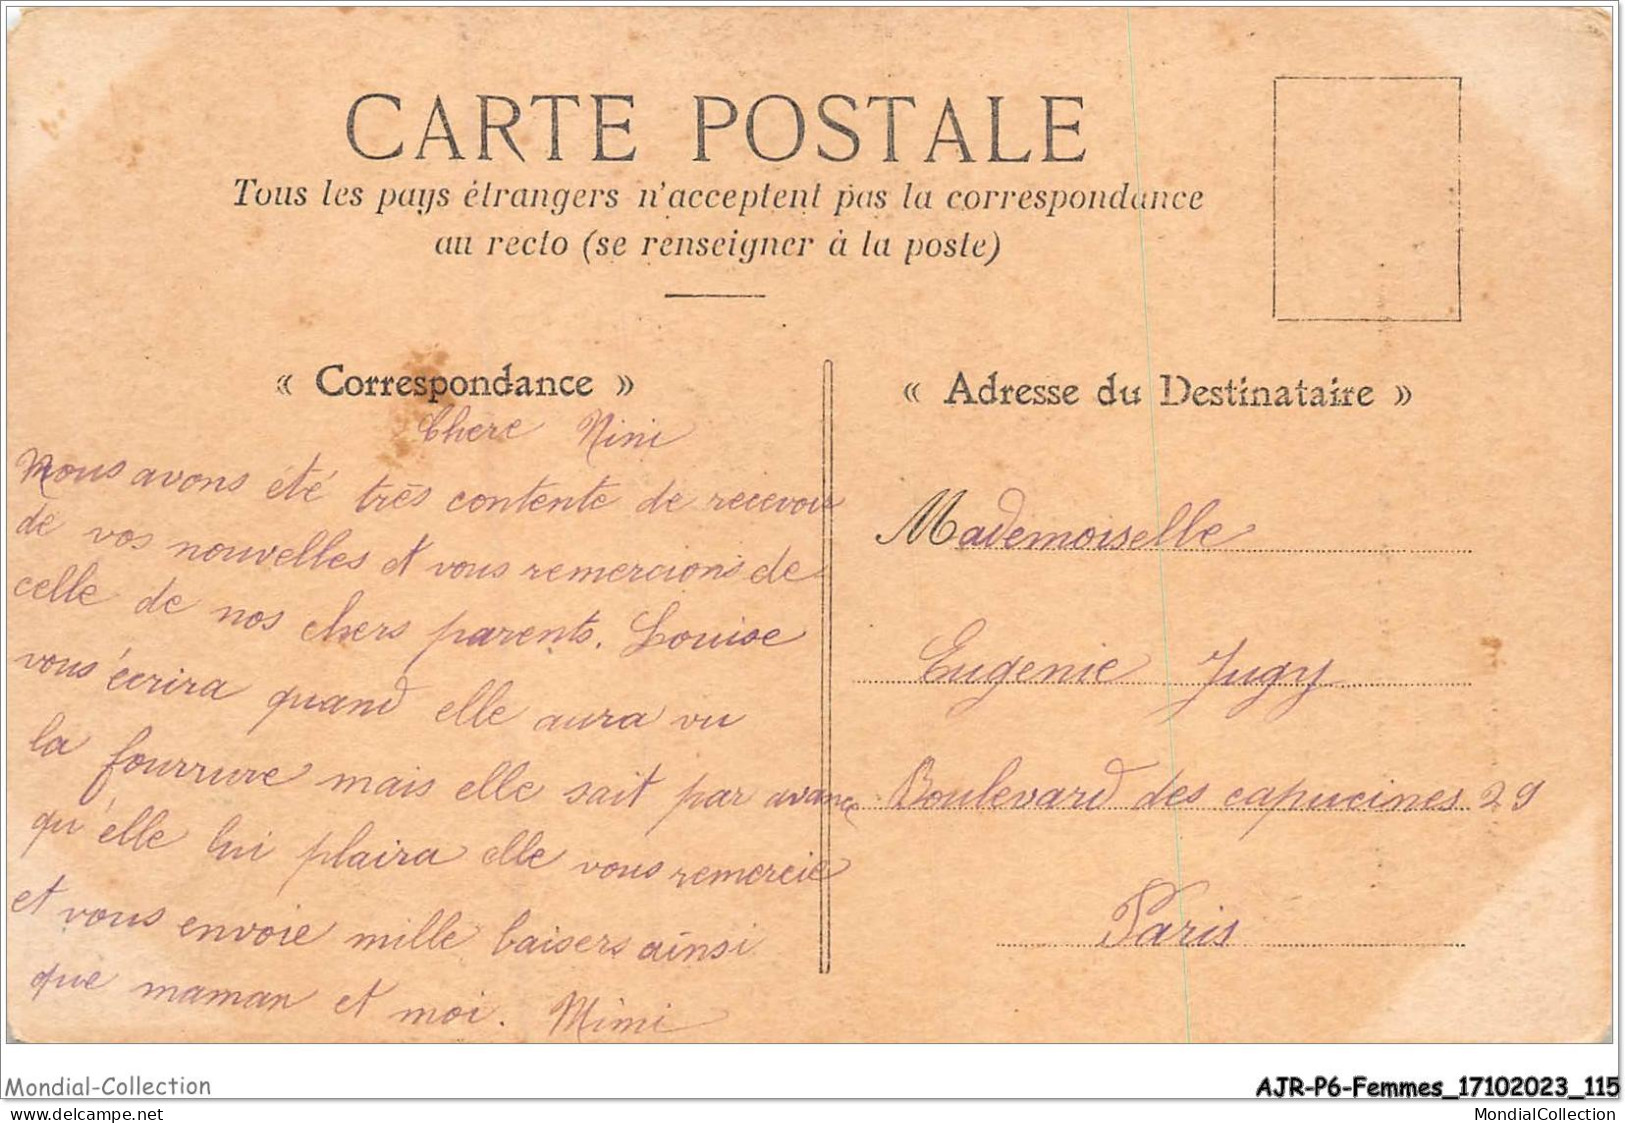 CARTE POSTALE
Tous les pays étrangers n'acceptent pas la correspondance
au recto (se renseigner à la poste)
« Correspondance »
Chere Nini
Nous avons été très contente de recevoir
de vos nouvelles et vous remercions de
celle de nos chers parents. Louise
vous écrira quand elle aura vu
la fourrure mais elle sait par avance
qu'elle lui plaira elle vous remercie
et vous envoie mille baisers ainsi
que maman et moi. Mimi
« Adresse du Destinataire »
Mademoiselle
Eugenie Jugy
Boulevard des capucines 29
Paris
Mondial-Collection
AJR-P6-Femmes_17102023_115
delcampe.net
MondialCollection